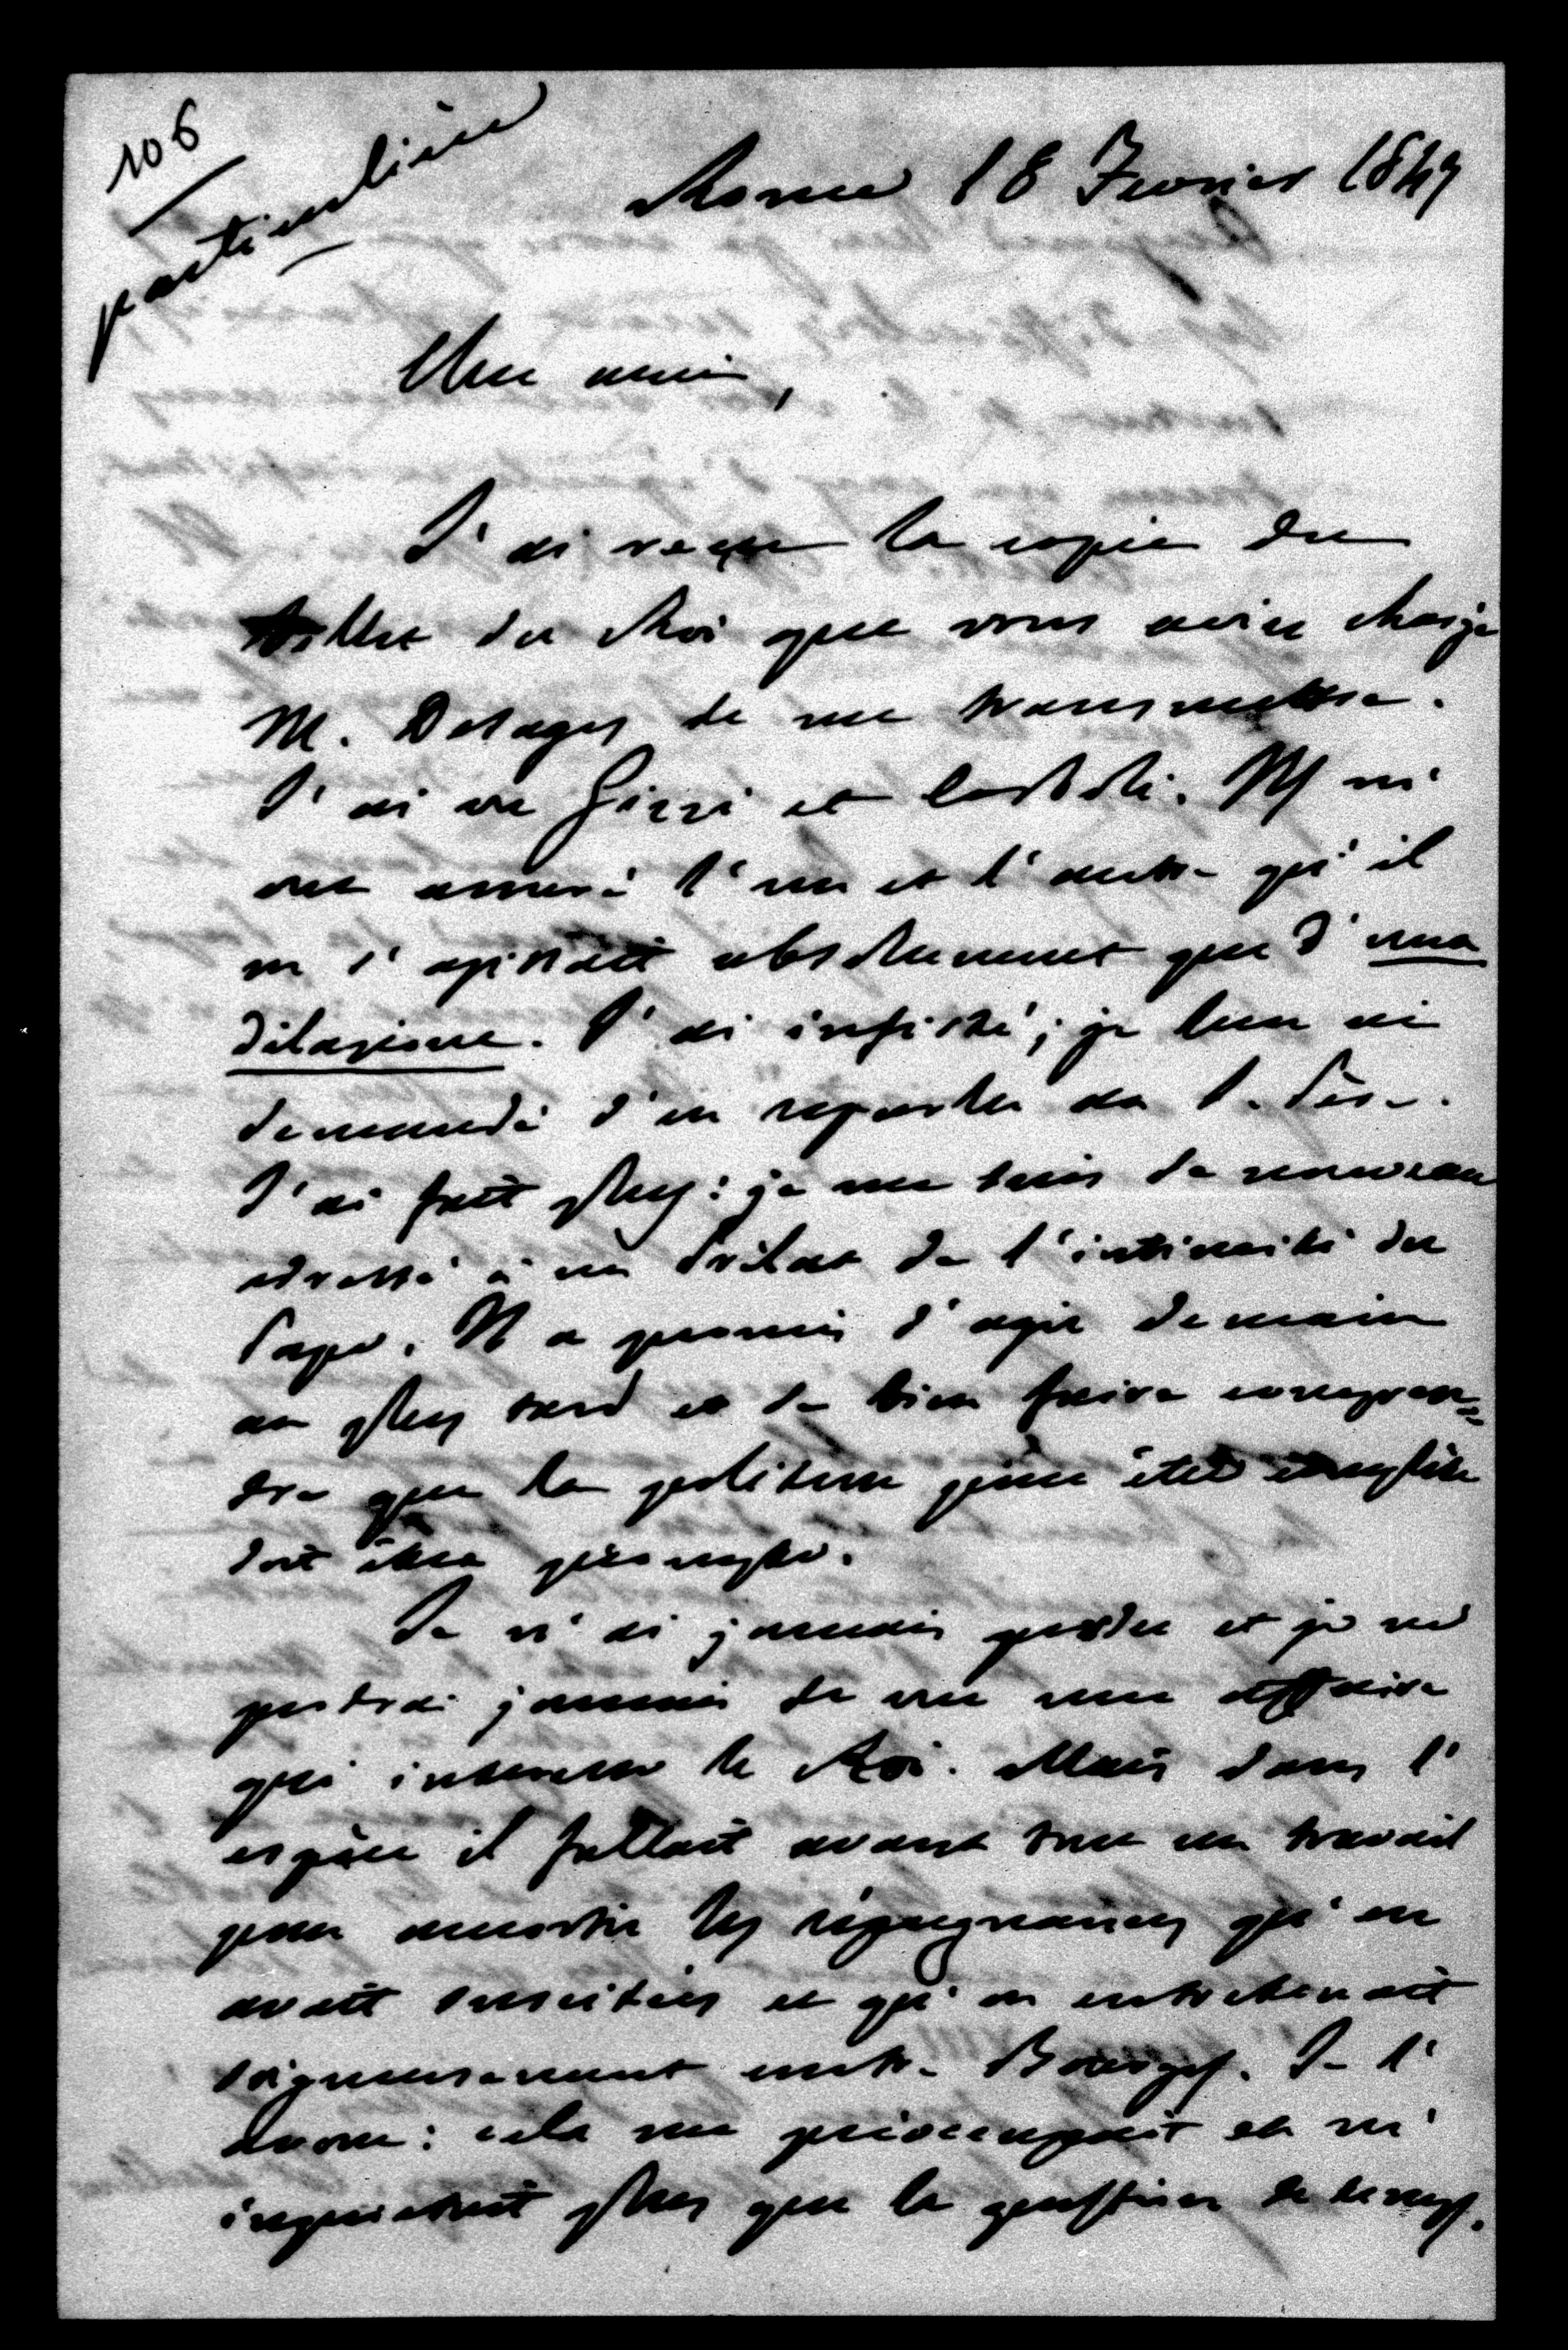 106
particulière
Rome 18 Fevrier 1847
Cher ami,
J'ai reçu la copie du
billet du Roi que vous aviez chargé
M. Desages de me transmettre.
J'ai vu Gizzi et Corboli. Ils m'
ont assuré l'un et l'autre qu'il
ne s'agissait absolument que d'una
dilazione. J'ai insisté; je leur ai
demandé d'en reparler au S. Père.
J'ai fait plus: je me suis de nouveau
adressé à un Prélat de l'intimité du
Pape. Il a promis d'agir demain
au plus tard et de bien faire compren=
dre que la politesse pour être complète
doit être prompte.
Je n'ai jamais perdu et je ne
perdrai jamais de vue une affaire
qui interesse le Roi. Mais dans l'
espèce il fallait avant tout un travail
pour amortir les répugnances qu'on
avait suscitées et qu'on entretenait
soigneusement contre Bourges. Je l'
avoue: cela me préoccupait et m'
inquiétait plus que la question de temps.